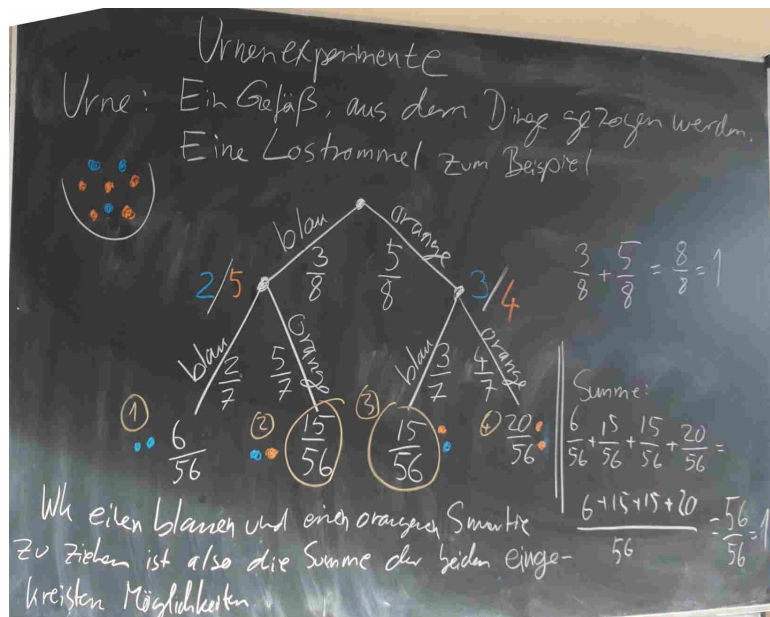 Urnenexperimente
Urne: Ein Gefäß, aus dem Dinge gezogen werden.
Eine Lostrommel zum Beispiel
blau 3/8
5/8 orange
3/8 + 5/8 = 8/8 = 1
2/5
3/4
blau 2/7
5/7 orange
blau 3/7
4/7 orange
1 6/56
2 15/56
3 15/56
4 20/56
Summe:
6/56 + 15/56 + 15/56 + 20/56 =
6+15+15+20/56 = 56/56 = 1
Wk einen blauen und einen orangenen Smartie
zu ziehen ist also die Summe der beiden einge-
kreisten Möglichkeiten.